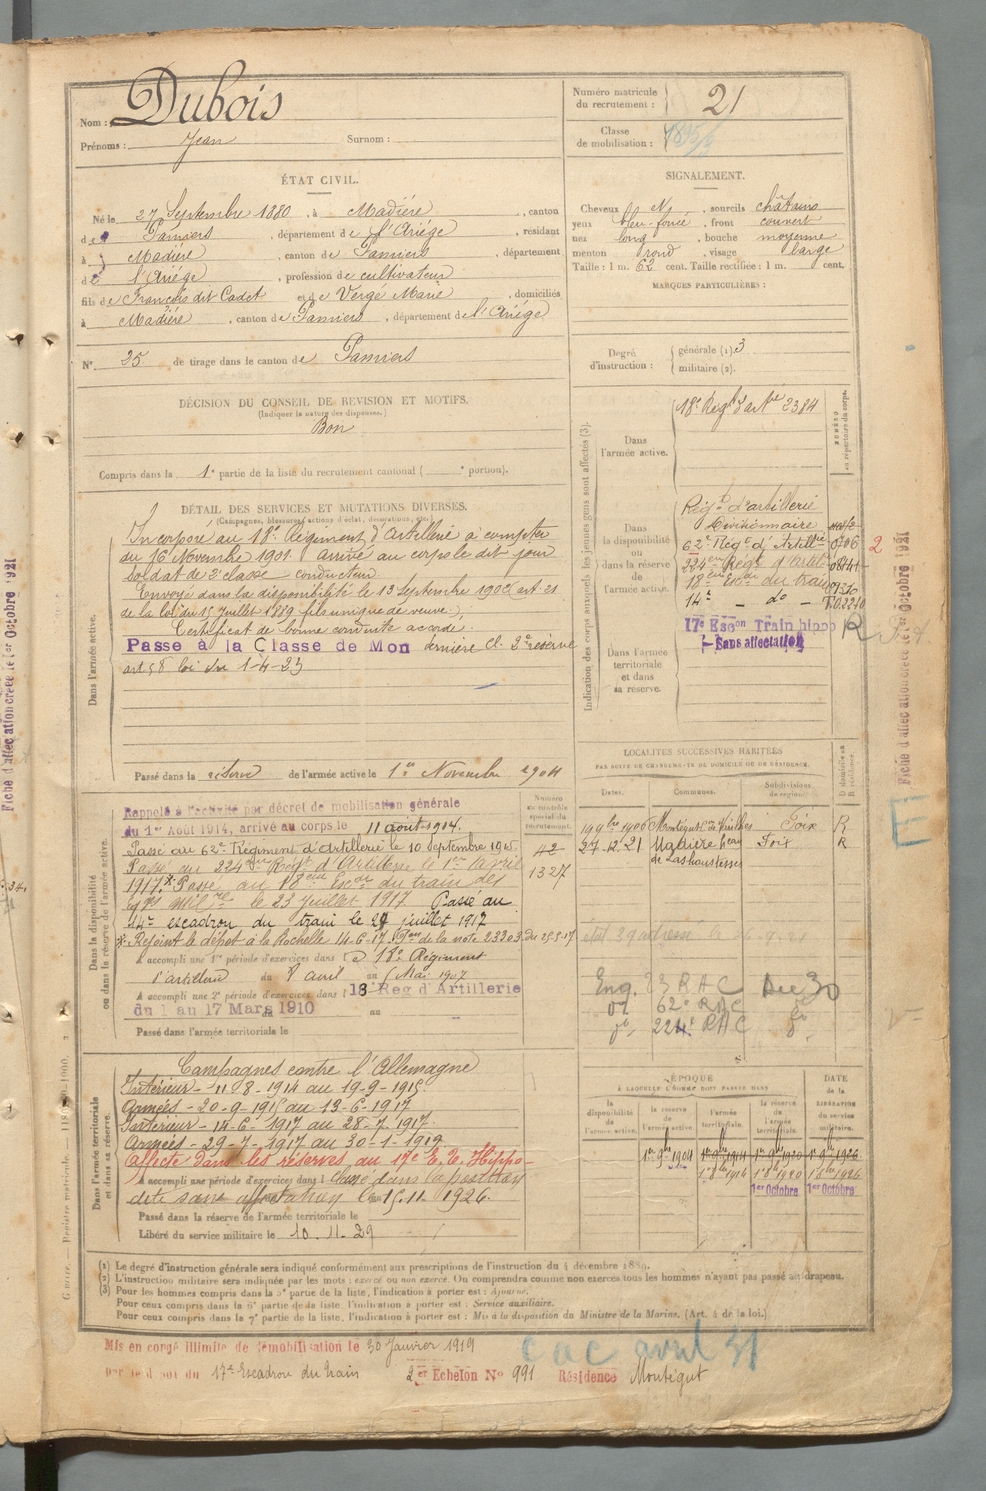 Nom : Dubois
Prénoms : Jean Surnom :
Numéro matricule du recrutement : 21
Classe de mobilisation :
ÉTAT CIVIL.
Né le 27 Septembre 1880, à Madière, canton
de Pamiers, département de l'Ariège, résidant
à Madière, canton de Pamiers, département
de l'Ariège, profession de cultivateur
fils de François dit Cadet et de Vergé Marie, domiciliés
à Madière, canton de Pamiers, département de l'Ariége
N° 25 de tirage dans le canton de Pamiers
SIGNALEMENT.
Cheveux N, sourcils châtains
yeux bleu-foncé, front couvert
nez long, bouche moyenne
menton rond, visage large
Taille : 1 m. 62 cent. Taille rectifiée : 1 m. cent.
MARQUES PARTICULIÈRES :
Degré d'instruction : générale (1). 3
militaire (2).
DÉCISION DU CONSEIL DE REVISION ET MOTIFS.
(Indiquer la nature des dispenses.)
Bon
Compris dans la 1e partie de la liste du recrutement cantonal ( e portion).
DÉTAIL DES SERVICES ET MUTATIONS DIVERSES.
(Campagnes, blessures, actions d'éclat, décorations, etc.)
Dans l'armée active.
Incorporé au 18e Régiment d'Artillerie à compter
du 16 Novembre 1901. Arrivé au corps le dit jour
soldat de 2e classe conducteur.
Envoyé dans la disponibilité le 13 Septembre 1902 art. 21
de la loi du 15 Juillet 1889 fils unique de veuve.
Certificat de bonne conduite accordé.
Passé à la Classe de Mon dernière Cl. 2e réserve
art 58 loi du 1-4-23
Passé dans la réserve de l'armée active le 1er Novembre 1904
Indication des corps auxquels les jeunes gens sont affectés (3).
NUMÉRO au répertoire du corps.
Dans l'armée active.
18e Regt d'artie 2384
Dans la disponibilité ou dans la réserve de l'armée active.
Regt d'artillerie
Divisionnaire
62e Regt d'Artillie 0706
224eme Régt d'Artie
18eme Eson du train
14e - do -
17e Eson Train hippo
Sans affectation
Dans l'armée territoriale et dans sa réserve.
LOCALITÉS SUCCESSIVES HABITÉES
PAR SUITE DE CHANGEMENTS DE DOMICILE OU DE RÉSIDENCE.
Dates. Communes. Subdivisions de région. D domicile ou R résidence.
19 9bre 1906 Montégut Foix R
27.12.21 Madière hau de Lashoustesses Foix R
Eng. 23 RAC Dec 30
62e RAC
224e RAC
Dans la disponibilité ou dans la réserve de l'armée active.
Numéro au contrôle spécial du recrutement.
42
1327
Rappelé à l'activité par décret de mobilisation générale
du 1er Août 1914, arrivé au corps le 11 août 1914.
Passé au 62e Régiment d'Artillerie le 10 septembre 1915
Passé au 224eme Régt d'Artillerie le 1er Avril
1917. * Passé au 18eme Eson du train des
le 23 juillet 1917 Passé au
14e escadron du train le 29 juillet 1917
* Rejoint le dépôt à la Rochelle 14-6-17 de la note 23303 du 25-5-17
A accompli une 1re période d'exercices dans le 18e Régiment
d'artillerie du 8 avril au Mai 1907
A accompli une 2e période d'exercices dans l 18 Reg d'Artillerie
du 1 au 17 Mars 1910 au
Passé dans l'armée territoriale le
Dans l'armée territoriale et dans sa réserve.
Campagnes contre l'Allemagne
Intérieur - 11-8-1914 au 19-9-1915
Armées - 20-9-1915 au 13-6-1917
Intérieur - 14-6-1917 au 28-7-1917.
Armées - 29-7-1917 au 30-1-1919
Affecté dans les réserves au 17e E. T. Hippo-
A accompli une période d'exercices dans l Classé dans la position
dite sans affectation le 15.11.1926.
Passé dans la réserve de l'armée territoriale le
Libéré du service militaire le 10.11.29
ÉPOQUE
À LAQUELLE L'HOMME DOIT PASSER DANS
la disponibilité de l'armée active. la réserve de l'armée active. l'armée territoriale. la réserve de l'armée territoriale.
DATE de la LIBÉRATION du service militaire.
1er 9bre 1904 1er 9bre 1914 1er 9bre 1920 1er 9bre 1926
1er 8bre 1914 1er 8bre 1920 1er 8bre 1926
1er Octobre 1er Octobre
(1) Le degré d'instruction générale sera indiqué conformément aux prescriptions de l'instruction du 4 décembre 1889.
(2) L'instruction militaire sera indiquée par les mots : exercé ou non exercé. On comprendra comme non exercés tous les hommes n'ayant pas passé au drapeau.
(3) Pour les hommes compris dans la 5e partie de la liste, l'indication à porter est : Ajourné.
Pour ceux compris dans la 6e partie de la liste l'indication à porter est : Service auxiliaire.
Pour ceux compris dans la 7e partie de la liste, l'indication à porter est : Mis à la disposition du Ministre de la Marine. (Art. 4 de la loi.)
Mis en congé illimité de démobilisation le 30 Janvier 1919
par le dépôt du 17e Escadron du train 2e Echelon N° 991 Résidence Montégut
cac avril 31
Fiche d'affectation créée le 1er Octobre 1921
Fiche d'affectation créée le 1er Octobre 1921